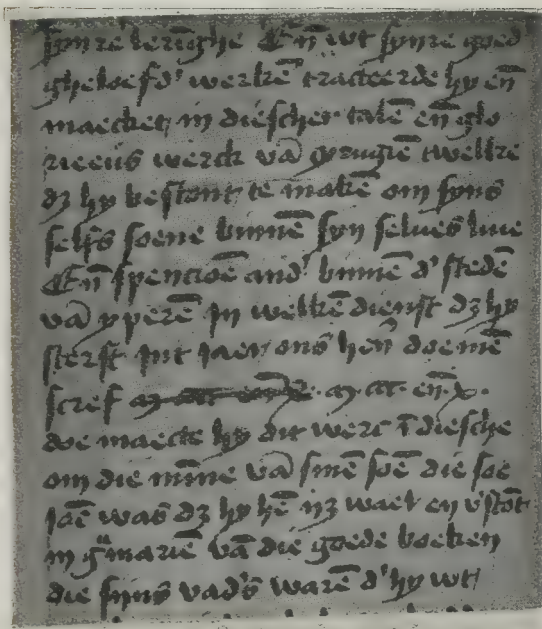 synre leringhe En̄ wt synre goed
gheloefd' werkē tracteerde hy en̄
maecket in diescher talē en̄ glo
rieeus werck vā twelke
dz hy bestont te makē om syns
selfs soene binnē syn selues hue
En̄ spencioē and' binnē d' stedē
vā yperē In welkē dienst dz hy
sterft Int Iaer ons hen̄ doemē
scref .m. cc. en̄ x.
doe maecte hy dit werc ī diesche
om die mīne vā sinē soē die soe
Iaē was dz hy hē nz wael en v'stōt
in gͣmariē vā die goede boeken
die syns vad's warē d' hy wt